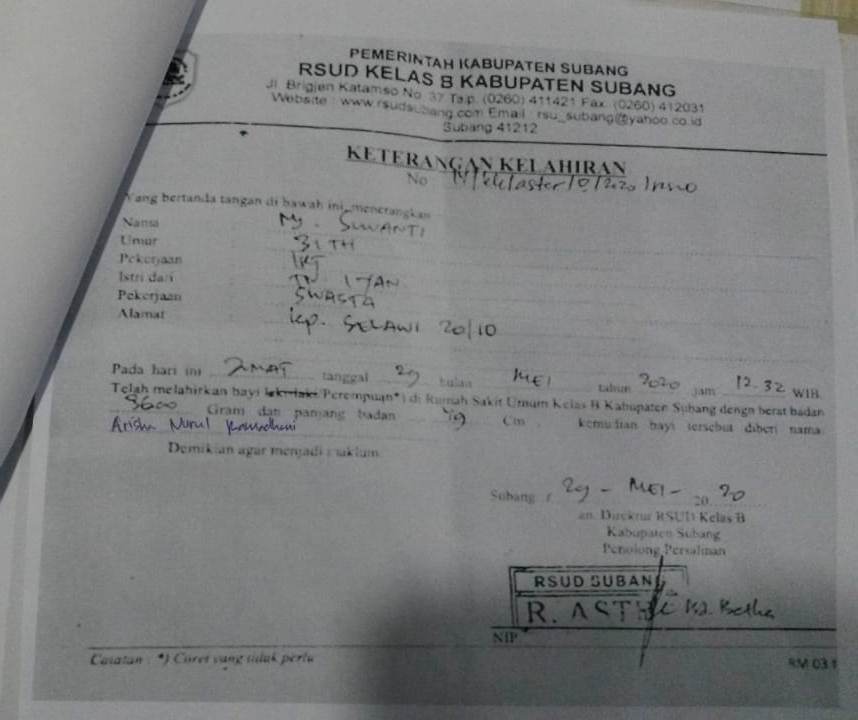 PEMERINTAH KABUPATEN SUBANG
RSUD KELAS B KABUPATEN SUBANG
Jl. Brigjen Katamso No. 37 Telp. (0260) 411421 Fax. (0260) 412031
Website : www.rsudsubang.com Email : rsu_subang@yahoo.co.id
Subang 41212
KETERANGAN KELAHIRAN
No
Yang bertanda tangan di bawah ini, menerangkan
Nama Ny. SUWANTI
Umur 31 TH
Pekerjaan IRT
Istri dari TN. IYAN
Pekerjaan SWASTA
Alamat Kp. SELAWI 20/10
Pada hari ini JUMAT tanggal 29 bulan MEI tahun 2020 jam 12.32 WIB.
Telah melahirkan bayi laki-laki/Perempuan*) di Rumah Sakit Umum Kelas B Kabupaten Subang dengn berat badan
3600 Gram dan panjang badan 49 Cm, kemudian bayi tersebut diberi nama:
Arisha Nurul Ramadhani
Demikian agar menjadi maklum.
Subang, 29 - MEI - 20 20
an. Direktur RSUD Kelas B
Kabupaten Subang
Penolong Persalinan
RSUD SUBANG
R. ASTER
NIP
Catatan : *) Coret yang tidak perlu
RM 03.1